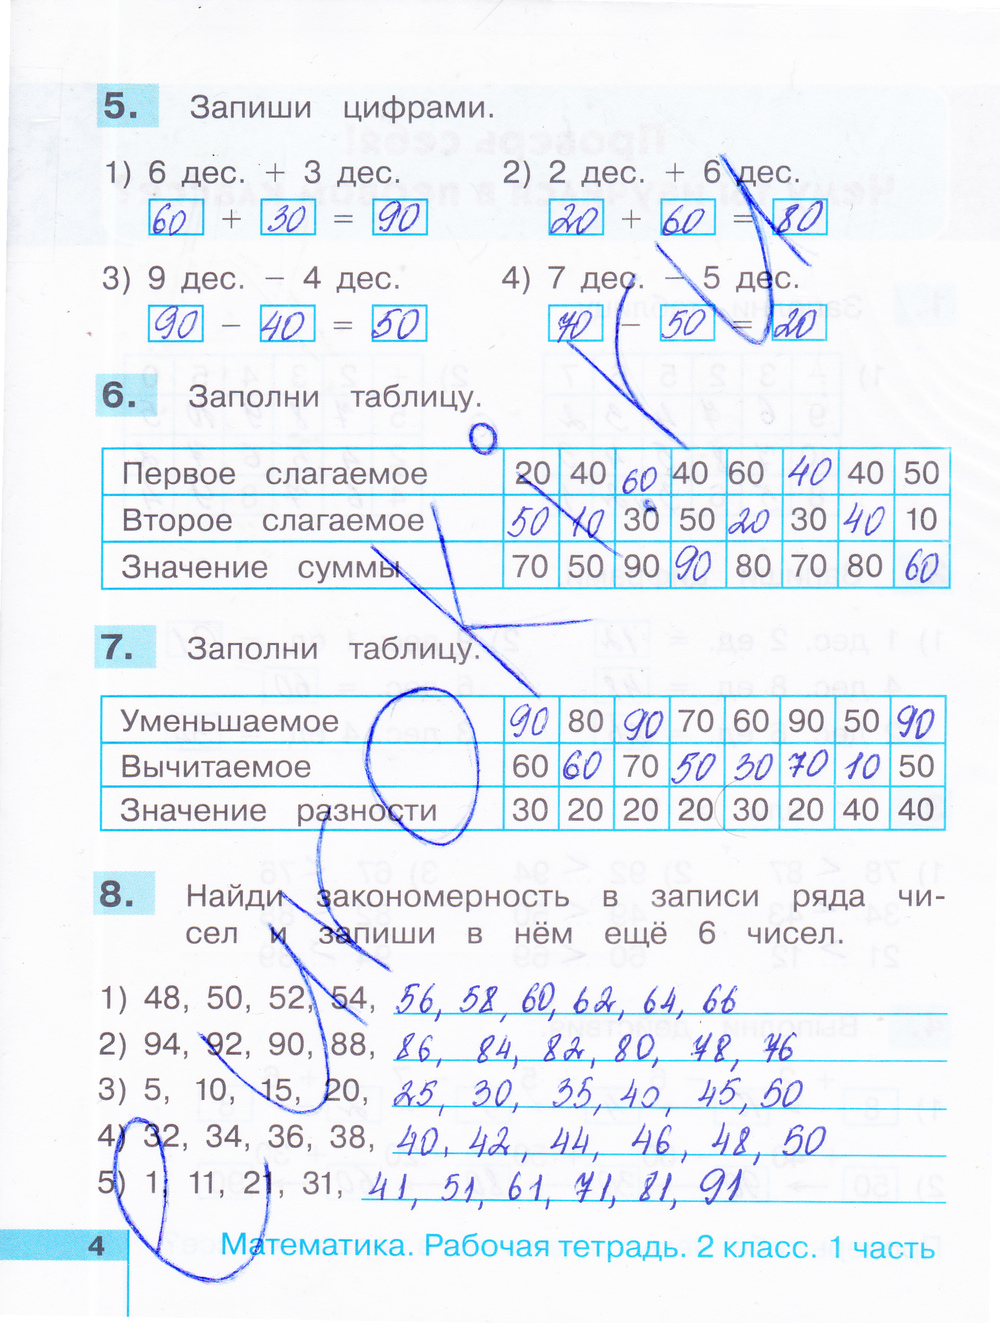 5. Запиши цифрами.
1) 6 дес. + 3 дес. 2) 2 дес. + 6 дес.
60 + 30 = 90 20 + 60 = 80
3) 9 дес. − 4 дес. 4) 7 дес. − 5 дес.
90 − 40 = 50 70 − 50 = 20
6. Заполни таблицу.
Первое слагаемое 20 40 60 40 60 40 40 50
Второе слагаемое 50 10 30 50 20 30 40 10
Значение суммы 70 50 90 90 80 70 80 60
7. Заполни таблицу.
Уменьшаемое 90 80 90 70 60 90 50 90
Вычитаемое 60 60 70 50 30 70 10 50
Значение разности 30 20 20 20 30 20 40 40
8. Найди закономерность в записи ряда чи-
сел и запиши в нём ещё 6 чисел.
1) 48, 50, 52, 54, 56, 58, 60, 62, 64, 66
2) 94, 92, 90, 88, 86, 84, 82, 80, 78, 76
3) 5, 10, 15, 20, 25, 30, 35, 40, 45, 50
4) 32, 34, 36, 38, 40, 42, 44, 46, 48, 50
5) 1, 11, 21, 31, 41, 51, 61, 71, 81, 91
4 Математика. Рабочая тетрадь. 2 класс. 1 часть